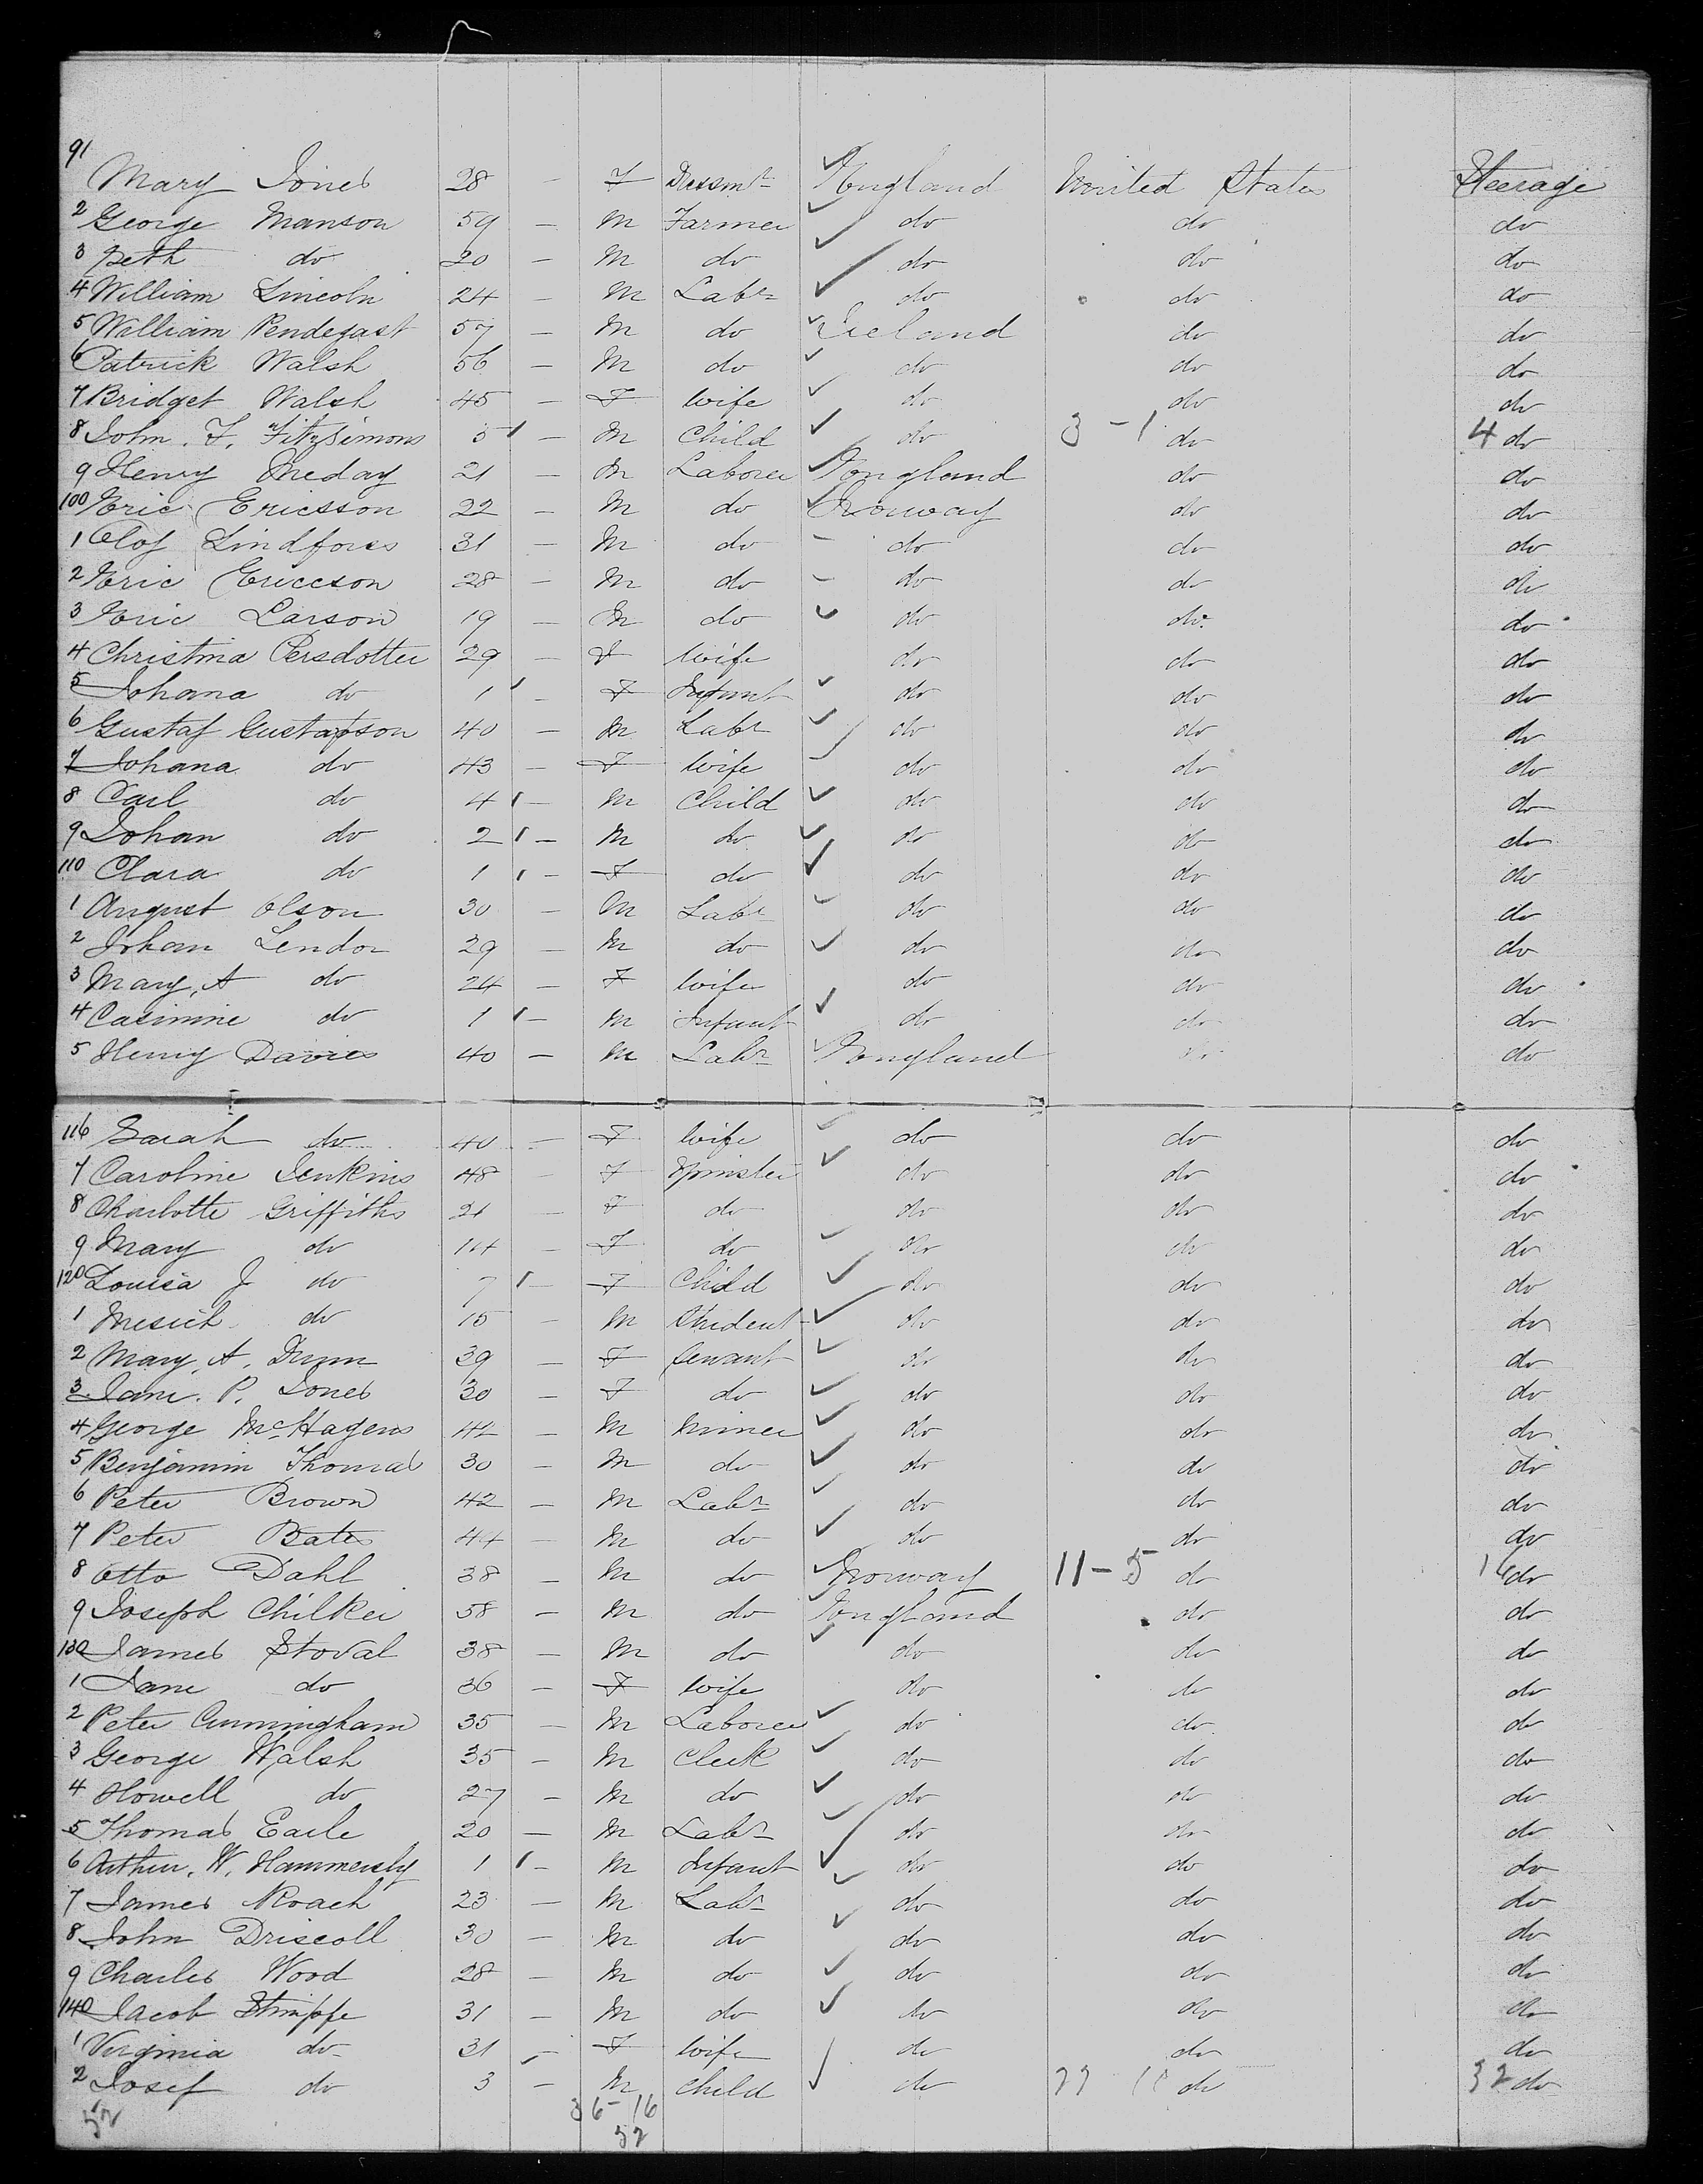 91 Mary Jones 28 - F Dressmr England United States Steerage
2 George Manson 59 - M Farmer do do do
3 Seth do 20 - M do do do do
4 William Lincoln 24 - M Labr do do do
5 William Pendegast 57 - M do Ireland do do
6 Patrick Walsh 56 - M do do do do
7 Bridget Walsh 45 - F Wife do do do
8 John. F. Fitzsimons 5 - M Child do 3 - 1 do 4 do
9 Henry 21 - M Laborer England do do
100 Eric Ericsson 22 - M do Norway do do
1 Olof Lindfores 31 - M do do do do
2 Eric Ericcson 28 - M do do do do
3 Eric Larson 19 - M do do do do
4 Christina Persdotter 29 - F Wife do do do
5 Johana do 1 - F Infant do do do
6 Gustaf Gustafson 40 - M Labr do do do
7 Johana do 43 - F Wife do do do
8 Carl do 4 - M Child do do do
9 Johan do 2 - M do do do do
110 Clara do 1 - F do do do do
1 August Olson 30 - M Labr do do do
2 Johan Lendor 29 - M do do do do
3 Mary, A do 24 - F Wife do do do
4 Casimine do 1 - M Infant do do do
5 Henry Davies 40 - M Labr England do do
116 Sarah do 40 - F Wife do do do
7 Caroline Jenkins 48 - F Spinster do do do
8 Charlotte Griffiths 21 - F do do do do
9 Mary do - F do do do do
120 Louisa J do 7 - F Child do do do
1 do 15 - M Student do do do
2 Mary, A. Dunn 39 - F Servant do do do
3 Jane. P. Jones 30 - F do do do do
4 George McHagens - M Miner do do do
5 Benjamin Thomas 30 - M do do do do
6 Peter Brown 42 - M Labr do do do
7 Peter Bates 44 - M do do do do
8 Otto Dahl 38 - M do Norway 11 - 5 do 16 do
9 Joseph Chilker 58 - M do England do do
130 James Stoval 38 - M do do do do
1 Jane do 36 - F Wife do do do
2 Peter Cunningham 35 - M Laborer do do do
3 George Walsh 35 - M Clerk do do do
4 Howell do 27 - M do do do do
5 Thomas Earle 20 - M Labr do do do
6 Arthur. W. Hammersly 1 - M Infant do do do
7 James Roach 23 - M Labr do do do
8 John Driscoll 30 - M do do do do
9 Charles Wood 28 - M do do do do
140 Jacob 31 - M do do do do
1 Virginia do 31 - F Wife do do do
2 Josef do 3 - M Child do do 32 do
52 36 - 16
52